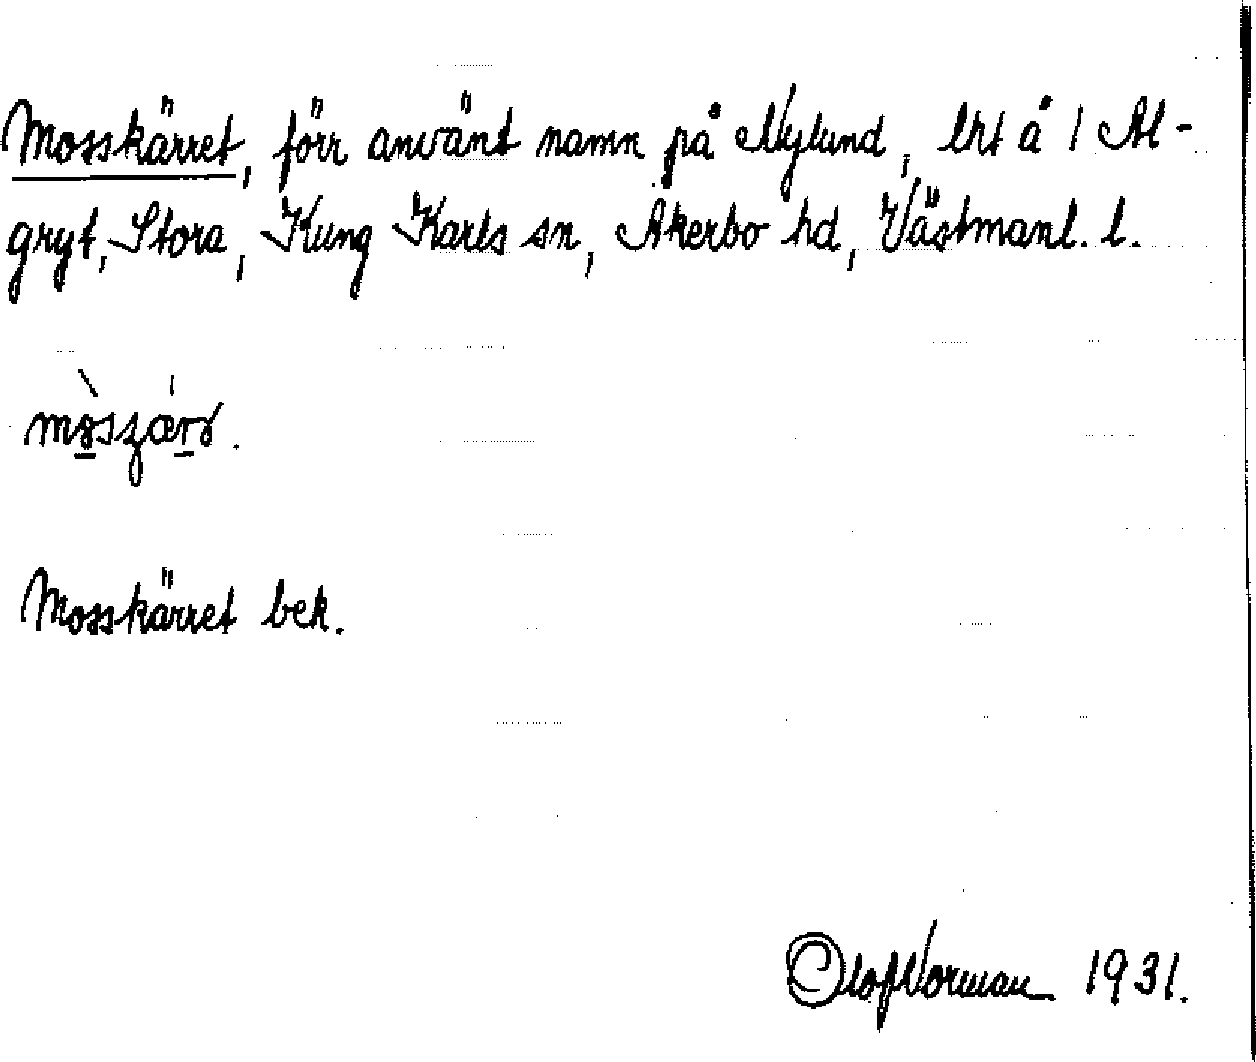 Mosskärret, förr använt namn på Nylund, lht å 1 Al-
gryt, Stora, Kung Karls sn, Åkerbo hd, Västmanl. l.
Mosskärret bek.
Olof Norman 1931.